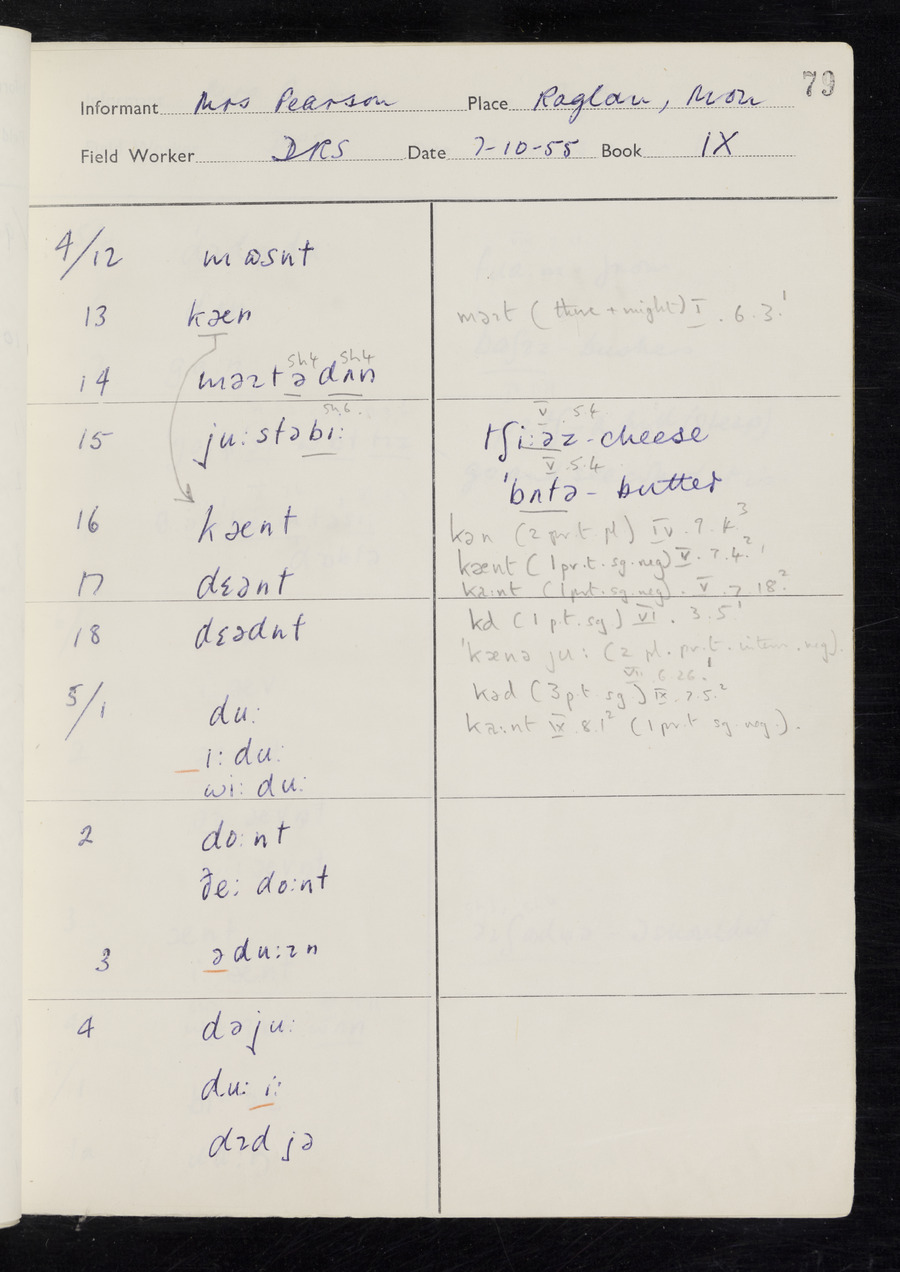 79
Informant Mrs Pearson Place Raglan, Mon
Field Worker DRS Date 7-10-55 Book IX
4/12 mɒsnt
13 kæn
məɪt (there + might) I. 6.3.¹
sh4 sh4
14 məɪt ə dʌn
sh.6.
15 ju: stəbɪ:
V .5.4
tʃi:əz - cheese
V .5.4
ˈbʌtə - butter
16 kænt
kən (2 pr.t. pl) IV. 9. k.³
kænt (1 pr.t. sg. neg) V. 7.4.²
17 dɛənt
ka:nt (1 pr.t. sg. neg). V. 7.18.²
18 dɛədnt
kd (1 p.t. sg) VI. 3.5.¹
ˈkænə ju: (2 pl. pr.t. interr. neg).
VII. 6.26.¹
kəd (3 p.t. sg) IX. 7.5.²
ka:nt IX. 8.1² (1 pr.t. sg. neg.).
5/1 du:
i: du:
wi: du:
2 do:nt
ðe: do:nt
3 ə du:ɪn
4 də ju:
du: i:
dɪd jə